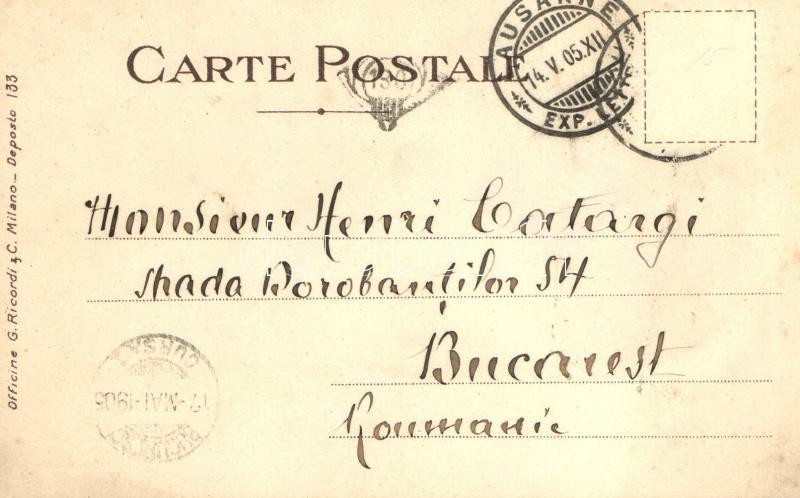 CARTE POSTALE
LAUSANNE
14.V.05.XII
EXP. LETT.
133
15
Officine G. Ricordi & C. Milano — Deposto 133
Monsieur Henri Catargi
strada Dorobanților 54
Bucarest
Roumanie
CURSA
17-MAI-1905